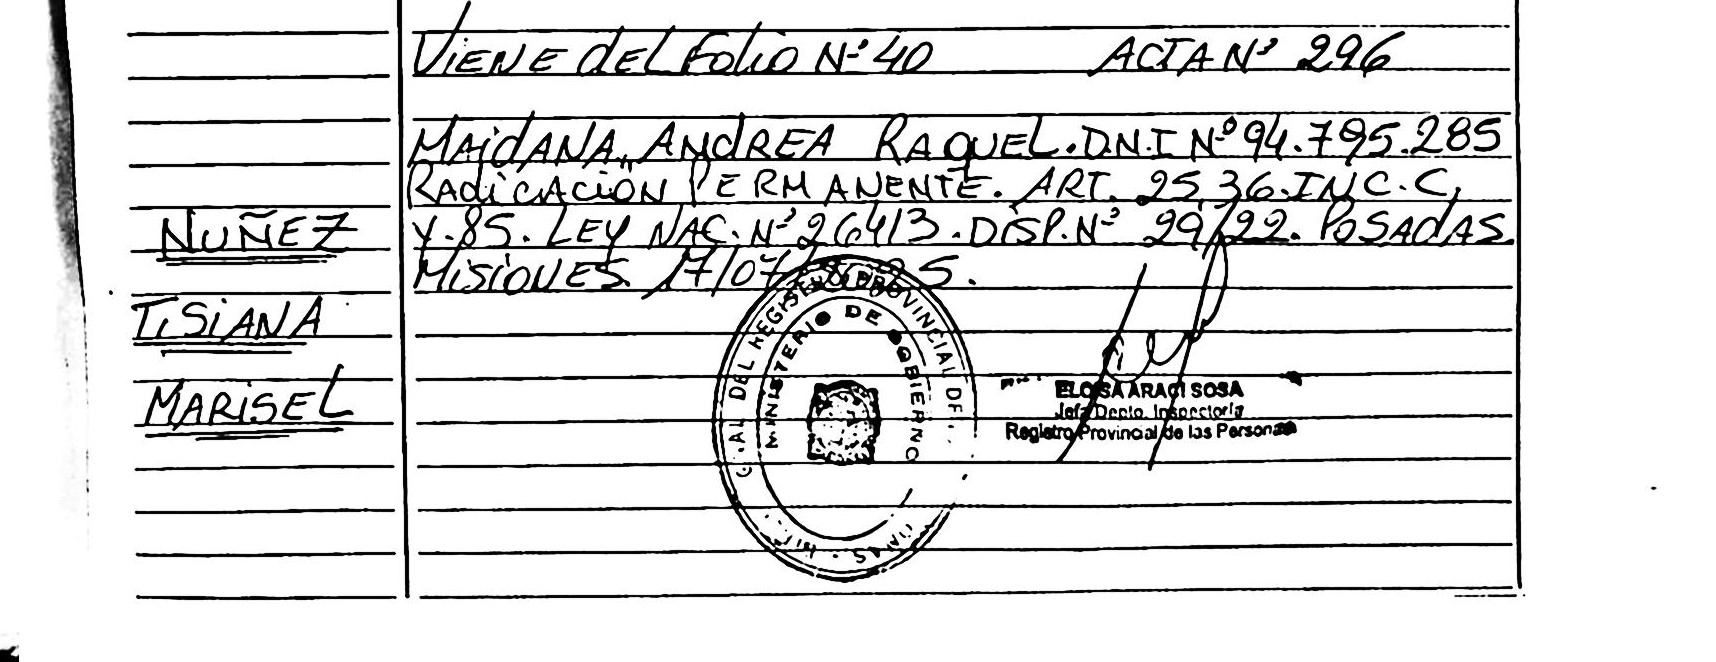 VIENE dEL Folio Nº 40 ACTA Nº 296
MAidANA, ANdREA RAQUEL. D.N.I Nº 94.795.285
RAdiCACiÓN PERMANENTE. ART. 25,36.INC.C,
NUÑEZ
Y.85. LEY NAC. Nº 26413. DiSP. Nº 29/22. POSAdAS
MiSiONES. 17/07/2025.
TiSiANA
MARiSEL
MINISTERIO DE GOBIERNO
AL DEL REGISTRO PROVINCIAL DE
ELOISA ARACI SOSA
Jefa Depto. Inspectoría
Registro Provincial de las Personas